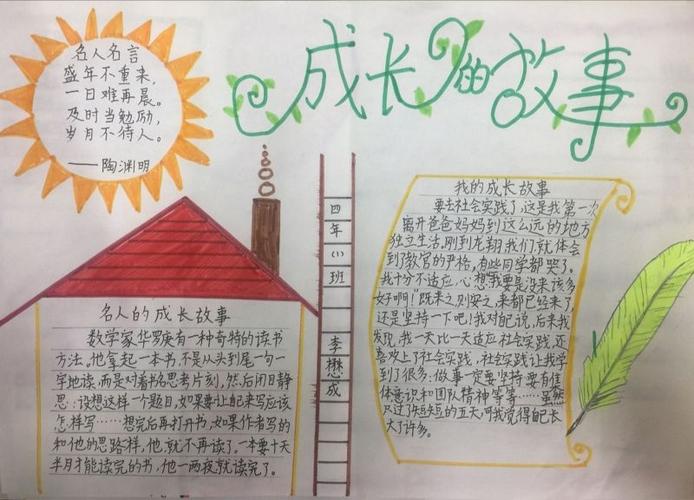 成长的故事
名人名言
盛年不重来，
一日难再晨。
及时当勉励，
岁月不待人。
——陶渊明
四年(1)班 李懋成
名人的成长故事
数学家华罗庚有一种奇特的读书
方法。他拿起一本书不是从头到尾一句一
字地读，而是对着书名思考片刻，然后闭目静
思：设想这样一个题目，如果要让自己来写应该
怎样写……想完后再打开书，如果作者写的
和他的思路样，他就不再读了。一本要十天
半月才能读完的书，他一两夜就读完了。
我的成长故事
要去社会实践了，这是我第一次
离开爸爸妈妈到这么远的地方
独立生活。刚到龙翔我们就体会
到了教官的严格，有些同学都哭了。
我十分不适应，心想：我要是没来该多
好啊！既来之则安之，来都已经来了，
还是坚持一下吧！我对自己说，后来我
发现，我一天比一天适应社会实践，还
喜欢上了社会实践，社会实践让我学
到了很多：做事一定要坚持，要有集
体意识和团队精神等等……虽然
只过了短短的五天，可我觉得自己长
大了许多。